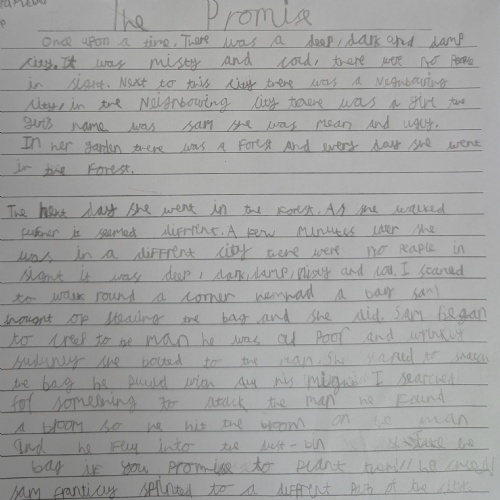 The Promise
Once upon a time. There was a deep, dark and damp
city. It was misty and coad, there were no peaple
in sight. Next to this city there was a Neighbowing
city, in the Neighbowing city there was a girl the
girls name was sam she was mean and ugly.
In her garden there was a Forest and every day she went
in the Forest.
The next day she went in the Forest. As she walked
further it seemed diffrent. A few minutes later she
was in a diffrent city there were no peaple in
sight it was deep, dark, damp, misty and coa. I started
to walk round a corner a bag sam
thought of stealing the bag and she did. Sam began
to to the man he was old poor and wrinkly
she bolted to the man. She started to
the bag he with all his might I searched
for something to atack the man he found
a bloom so he hit the bloom on the man
and he flew into the dust-bin the
bag if you promise to plant them!! he
sam franticly sprinted to a diffrent part of the